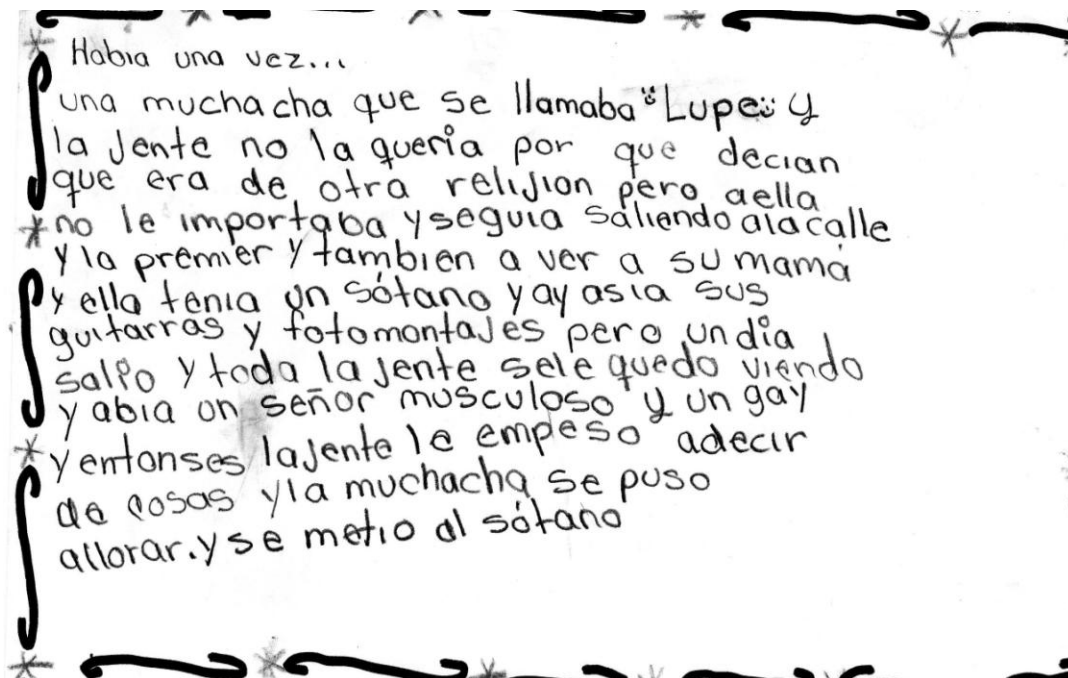 Habia una vez...
una muchacha que se llamaba "Lupe" y
la jente no la quería por que decian
que era de otra relijion pero aella
no le importaba yseguia saliendo alacalle
y la premier y tambien a ver a su mamá
y ella tenia un sótano y ay asia sus
guitarras y fotomontajes pero un día
salio y toda la jente sele quedo viendo
y abia un señor musculoso y un gay
y entonses lajente le empeso adecir
de cosas yla muchacha se puso
allorar. y se metio al sótano